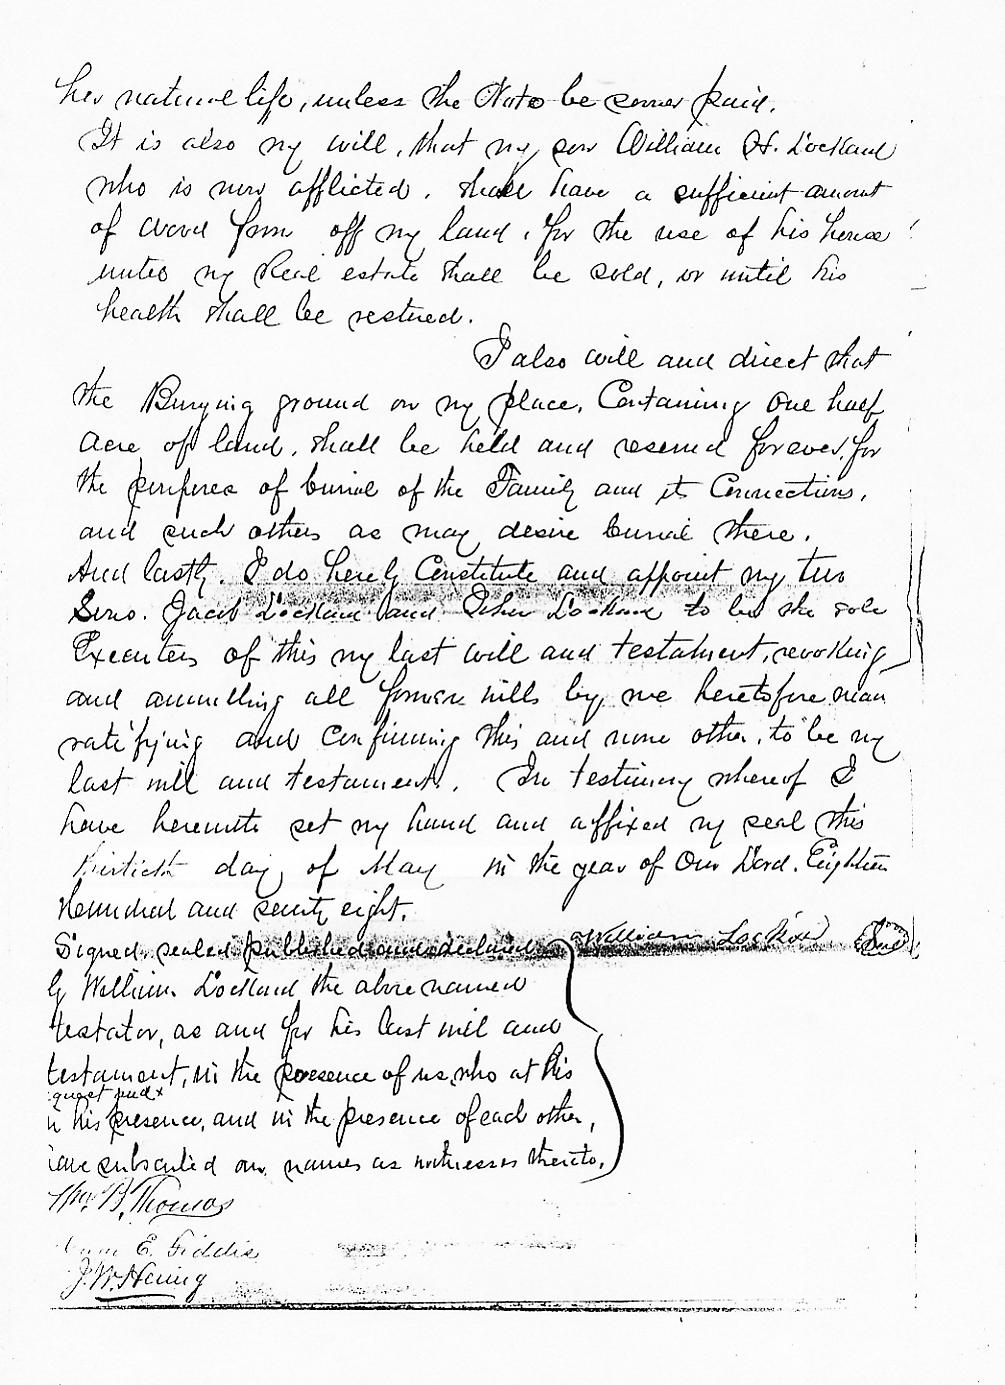 her natural life, unless the Note be sooner paid.
It is also my will, that my son William H. Lockland
who is now afflicted, shall have a sufficient amount
of wood from off my land, for the use of his house
until my Real estate shall be sold, or until his
health shall be restored.
I also will and direct that
the Burying ground on my place, Containing one half
acre of land, shall be held and reserved forever, for
the purposes of burial of the Family and its Connections,
and such others as may desire burial there.
And lastly, I do hereby Constitute and appoint my two
Sons, Jacob Lockland and Lockland to be the sole
Executors of this my last will and testament, revoking
and annulling all former wills by me heretofore
ratifying and confirming this and none other, to be my
last will and testament. In testimony whereof I
have hereunto set my hand and affixed my seal this
thirtieth day of May in the year of Our Lord, Eighteen
Hundred and seventy eight.
Signed, sealed, published and declared William Seal
by William Lockland the above named
testator, as and for his last will and
testament, in the presence of us, who at his
quest and
n his presence, and in the presence of each other,
have subscribed our names as witnesses thereto.
Wm. B. Thomas
E. Fiddis
J. W. Hering